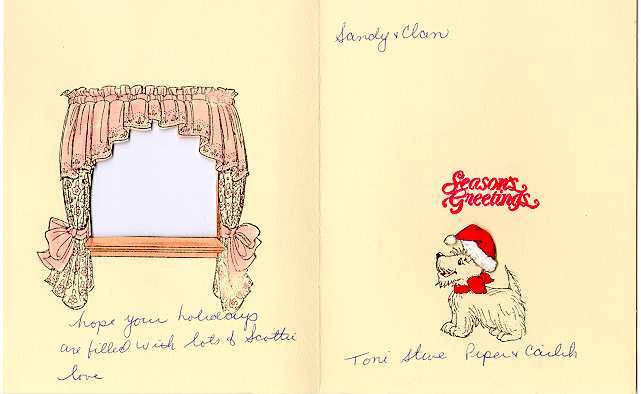 Sandy & Clan
Season's
Greetings
hope your holidays
are filled with lots of Scottie
love
Toni Steve Piper &